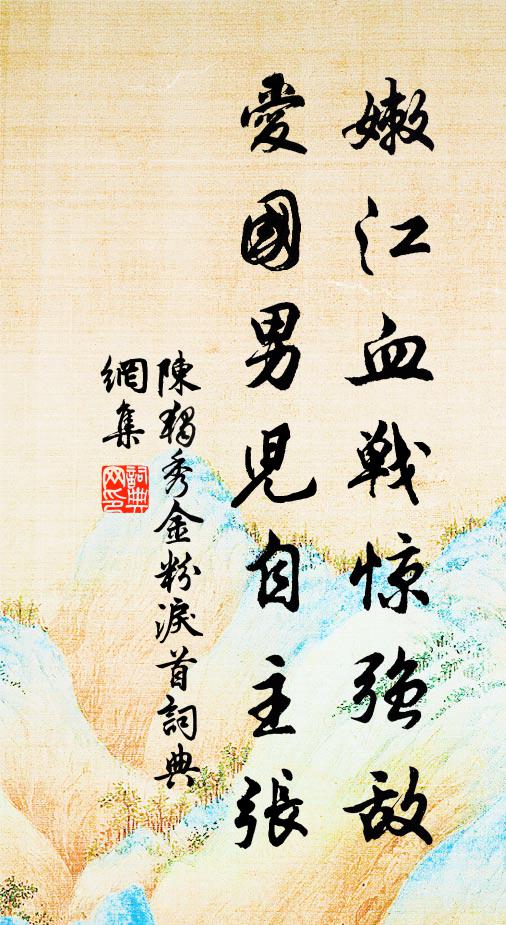 嫩江血戰惊強敌
愛國男児自主張
陳獨秀金粉淚首詞典
網集
詞典
网印